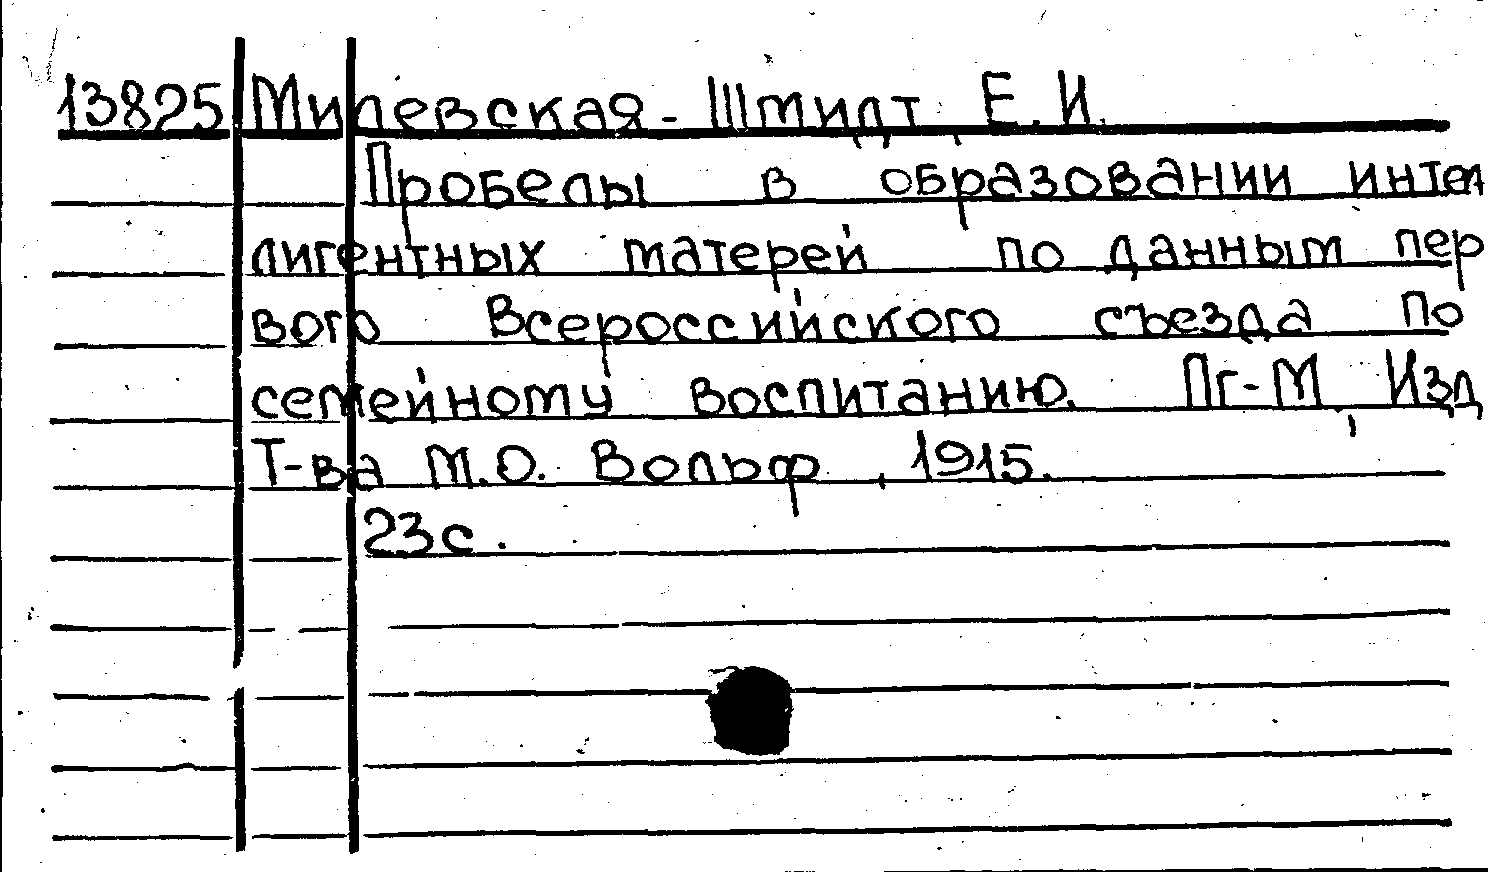 13825 Милевская-Шмидт, Е.И.
Пробелы в образовании интел
лигентных матерей по данным пер
вого Всероссийского съезда по
семейному воспитанию. Пг-М, Изд.
Т-ва М.О. Вольф, 1915.
23с.